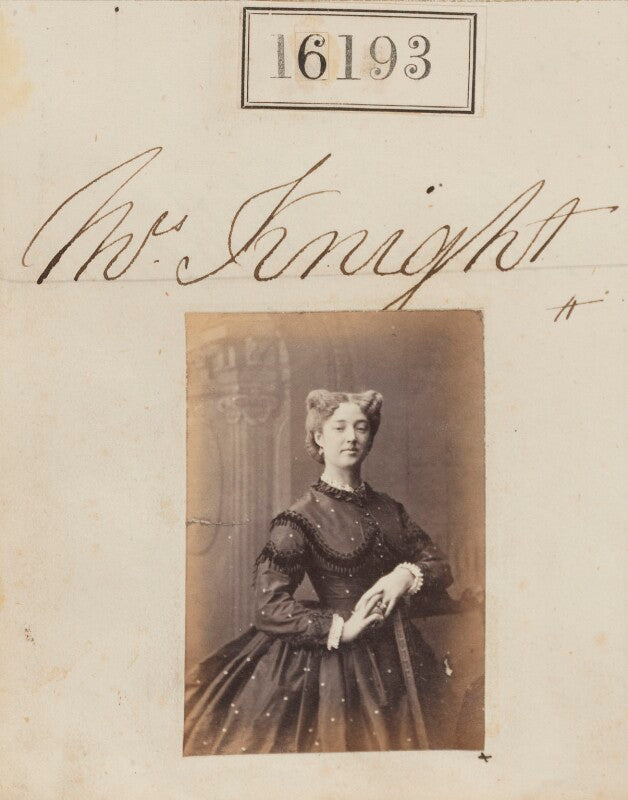 16193
Mrs. Knight